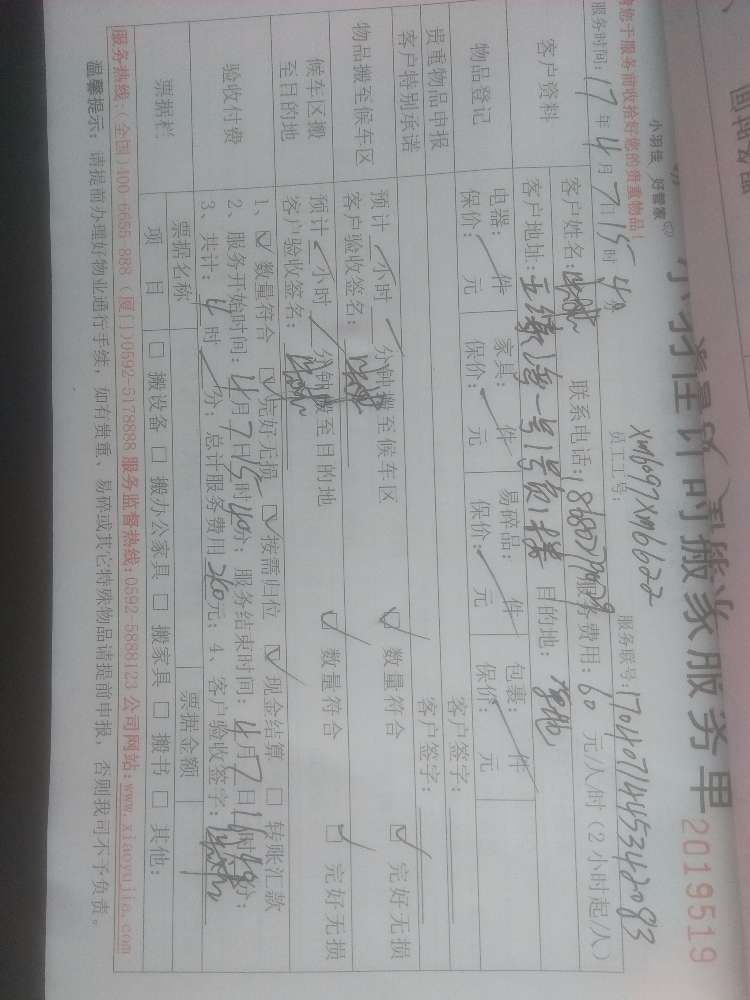 小羽佳 好管家
计时搬家服务单
2019519
员工工号: XM6097XM6622
服务联号: 1704071445342083
请您于服务前收拾好您的贵重物品!
服务时间: 17年4月7日15时40
客户资料
客户姓名:
联系电话:
服务费用: 60 元/人/时 (2小时起/人)
客户地址: 五缘湾一号
目的地:
物品登记
电器: 件
家具: 件
易碎品: 件
包裹: 件
保价: 元
保价: 元
保价: 元
保价: 元
贵重物品申报
客户签字:
客户特别承诺
客户签字:
物品搬至候车区
预计 小时 分钟搬至候车区
数量符合
完好无损
客户验收签名:
候车区搬至目的地
预计 小时 分钟搬至目的地
数量符合
完好无损
客户验收签名:
验收付费
1、 数量符合 完好无损 按需归位 现金结算 转账汇款
2、服务开始时间: 4月7日15时40分; 服务结束时间: 4月7日 时 分;
3、共计: 4时 分; 总计服务费用 元; 4、客户验收签字:
票据栏
票据名称
票据金额
项目
搬设备 搬办公家具 搬家具 搬书 其他:
服务热线:(全国)400 6655 888 (厦门)0592-5178888 服务监督热线:0592-5888123 公司网站:www.xiaoyujia.com
温馨提示: 请提前办理好物业通行手续, 如有贵重、易碎或其它特殊物品请提前申报, 否则我司不予负责。